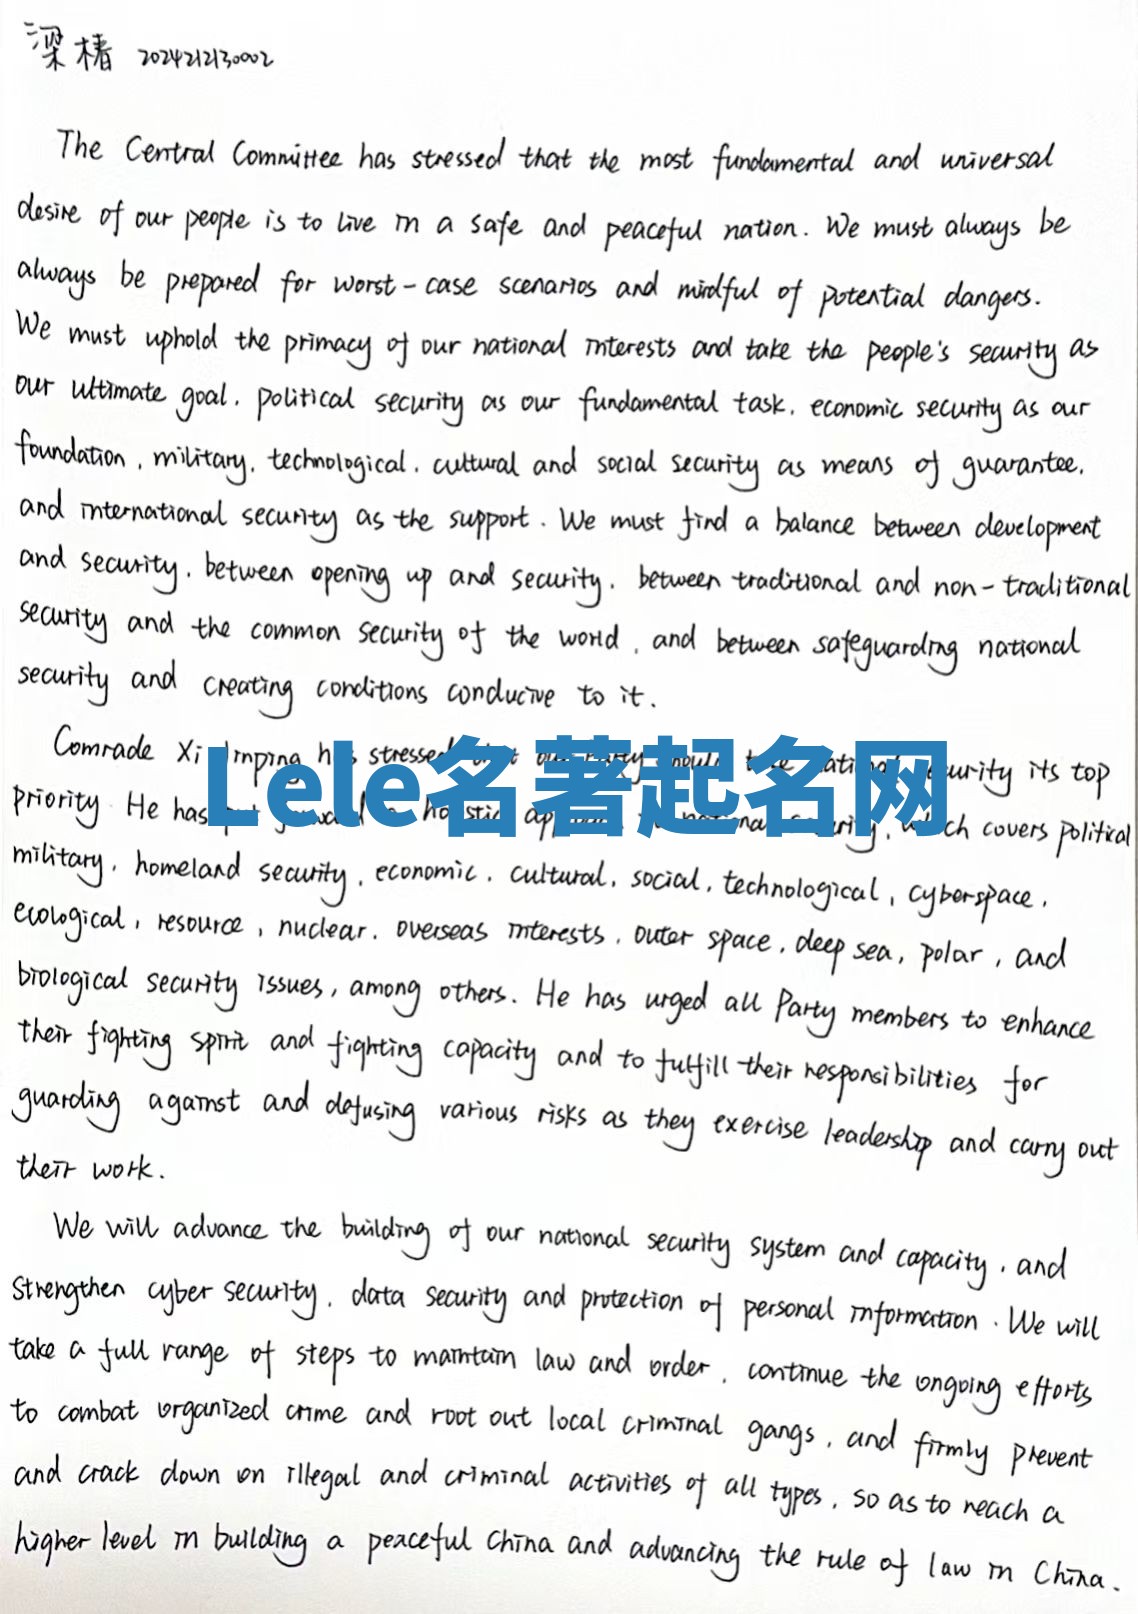 梁椿 2024212130002
The Central Committee has stressed that the most fundamental and universal
desire of our people is to live in a safe and peaceful nation. We must always be
always be prepared for worst-case scenarios and mindful of potential dangers.
We must uphold the primacy of our national interests and take the people's security as
our ultimate goal, political security as our fundamental task, economic security as our
foundation, military, technological, cultural and social security as means of guarantee,
and international security as the support. We must find a balance between development
and security, between opening up and security, between traditional and non-traditional
security and the common security of the world, and between safeguarding national
security and creating conditions conducive to it.
Comrade Xi Jinping has stressed that our Party should take national security its top
priority. He has put forward a holistic approach to national security, which covers political
military, homeland security, economic, cultural, social, technological, cyberspace,
ecological, resource, nuclear, overseas interests, outer space, deep sea, polar, and
biological security issues, among others. He has urged all Party members to enhance
their fighting spirit and fighting capacity and to fulfill their responsibilities for
guarding against and defusing various risks as they exercise leadership and carry out
their work.
We will advance the building of our national security system and capacity, and
strengthen cyber security, data security and protection of personal information. We will
take a full range of steps to maintain law and order, continue the ongoing efforts
to combat organized crime and root out local criminal gangs, and firmly prevent
and crack down on illegal and criminal activities of all types, so as to reach a
higher level in building a peaceful China and advancing the rule of law in China.
Lele名著起名网